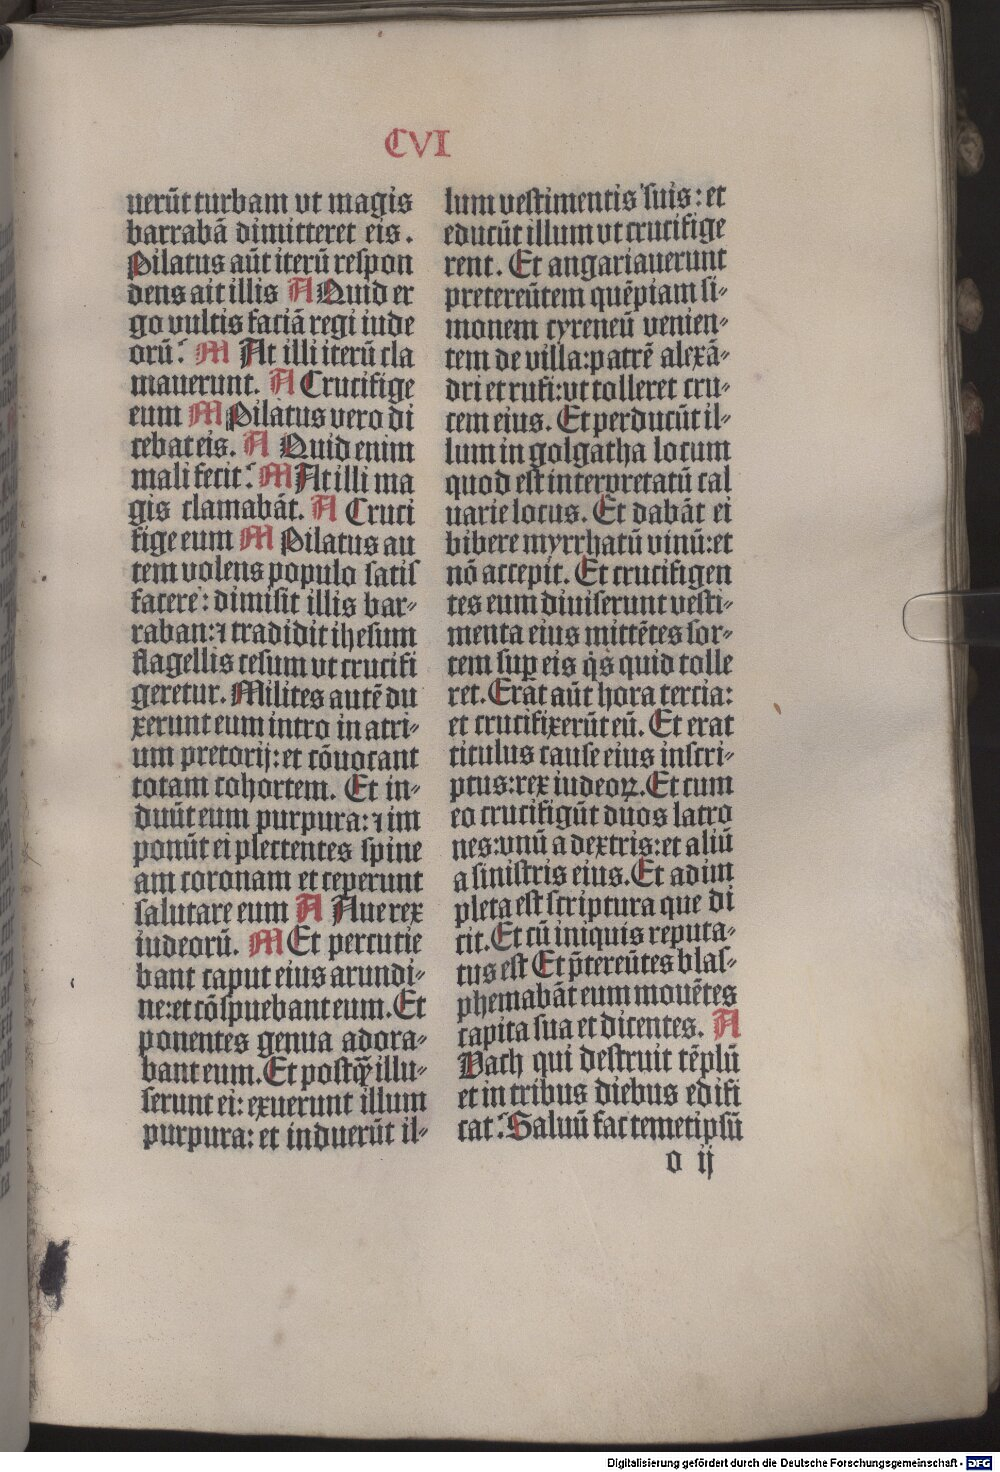 CVI
uerūt turbam vt magis
barrabā dimitteret eis.
Pilatus aūt iterū respon
dens ait illis A Quid er
go vultis faciā regi iude
orū? M At illi iterū cla
mauerunt. A Crucifige
eum M Pilatus vero di
cebat eis. A Quid enim
mali fecit? M At illi ma
gis clamabāt. A Cruci
fige eum M Pilatus au
tem volens populo satis
facere: dimisit illis bar-
raban: ⁊ tradidit ihesum
flagellis cesum vt crucifi
geretur. Milites autē du
xerunt eum intro in atri-
um pretorij: et cōuocant
totam cohortem. Et in-
duūt eum purpura: ⁊ im
ponūt ei plectentes spine
am coronam et ceperunt
salutare eum A Aue rex
iudeorū. M Et percutie
bant caput eius arundi-
ne: et cōspuebant eum. Et
ponentes genua adora-
bant eum. Et postq̄ illu-
serunt ei: exuerunt illum
purpura: et induerūt il-
lum vestimentis suis: et
educūt illum vt crucifige
rent. Et angariauerunt
pretereūtem quēpiam si-
monem cyreneū venien-
tem de villa: patrē alexā-
dri et rufi: vt tolleret cru-
cem eius. Et perducūt il-
lum in golgatha locum
quod est interpretatū cal
uarie locus. Et dabāt ei
bibere myrrhatū vinū: et
nō accepit. Et crucifigen
tes eum diuiserunt vesti-
menta eius mittētes sor-
tem suꝑ eis q̇s quid tolle
ret. Erat aūt hora tercia:
et crucifixerūt eū. Et erat
titulus cause eius inscri-
ptus: rex iudeoꝝ. Et cum
eo crucifigūt duos latro
nes: vnū a dextris: et aliū
a sinistris eius. Et adim
pleta est scriptura que di
cit. Et cū iniquis reputa-
tus est Et p̄tereūtes blas-
phemabāt eum mouētes
capita sua et dicentes. A
Vach qui destruit tēplū
et in tribus diebus edifi
cat? Saluū fac temetipsū
o ij
Digitalisierung gefördert durch die Deutsche Forschungsgemeinschaft - DFG